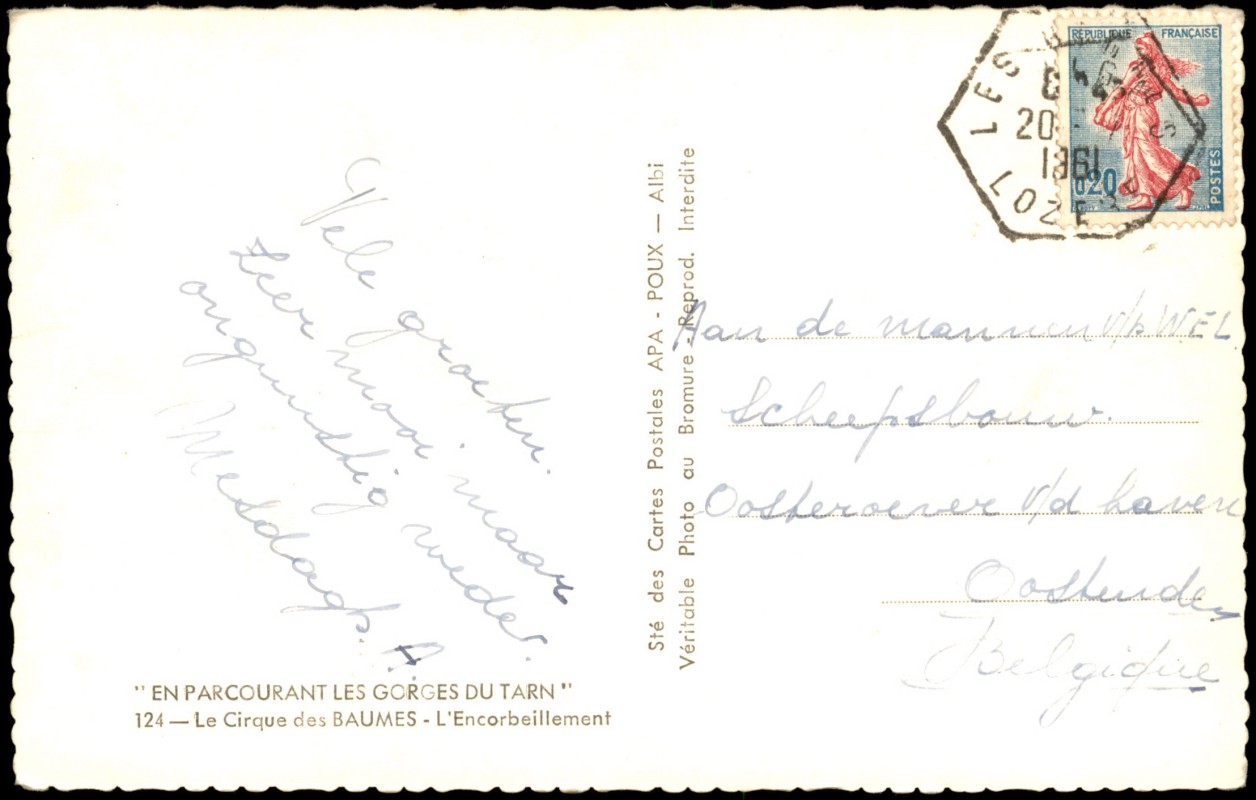 Vele groeten.
Zeer mooi maar
ongunstig weder.
Mesdagh. A.
" EN PARCOURANT LES GORGES DU TARN "
124 — Le Cirque des BAUMES - L'Encorbeillement
Sté des Cartes Postales APA - POUX — Albi
Véritable Photo au Bromure - Reprod. Interdite
RÉPUBLIQUE FRANÇAISE
0,20
POSTES
LES
20
1961
LOZERE
Aan de mannen v/h WEL
Scheepsbouw.
Oosteroever v/d haven
Oostende
Belgique